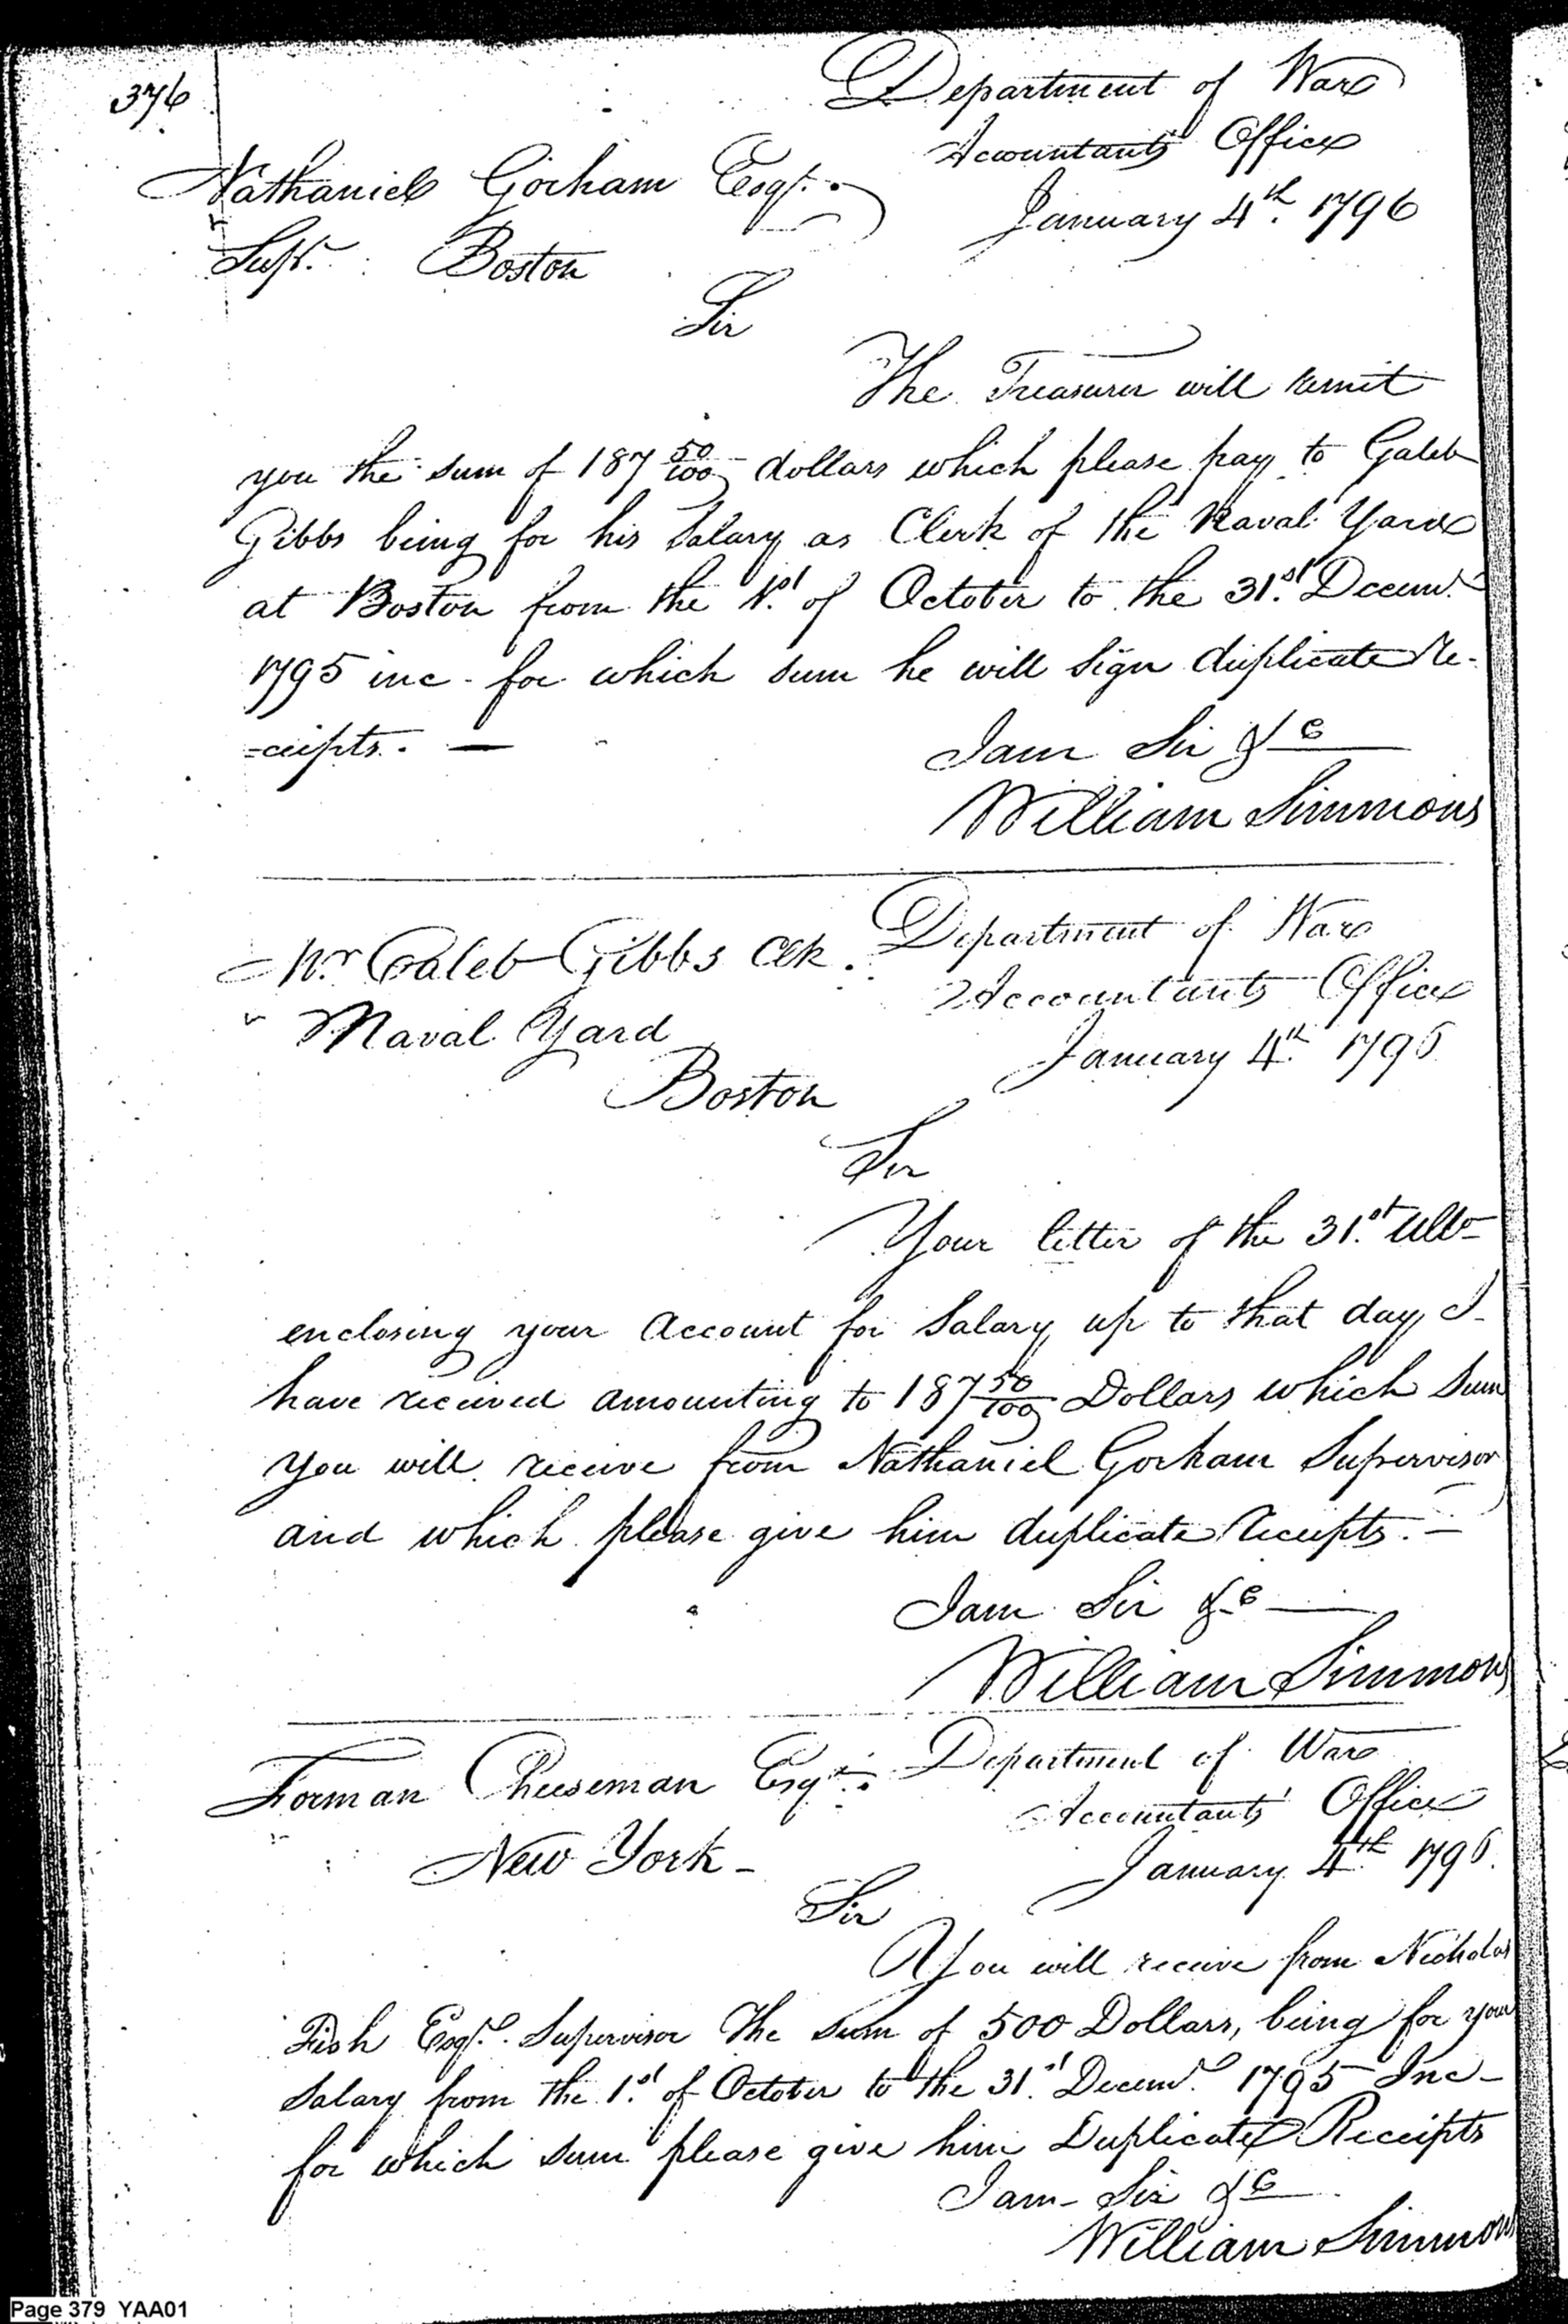 376
Department of War
Accountants Office
January 4th. 1796
Nathaniel Gorham Esqr.
Supr. Boston
Sir
The Treasurer will remit
you the sum of 187 50/100 dollars which please pay to Caleb
Gibbs being for his Salary as Clerk of the Naval Yard
at Boston from the 1st. of October to the 31st. Decemr.
1795 inc. for which sum he will sign duplicate Re-
=ceipts. —
I am Sir &c
William Simmons
Mr Caleb Gibbs Clk.
Naval Yard
Boston
Department of War
Accountants Office
January 4th. 1796
Sir
Your letter of the 31st. Ulto
enclosing your Account for Salary up to that day I
have received amounting to 187 50/100 Dollars which Sum
you will receive from Nathaniel Gorham Supervisor
and which please give him duplicate receipts. —
I am Sir &c —
William Simmons
Forman Cheeseman Esqr.
New York -
Department of War
Accountants' Office
January 4th. 1796.
Sir
You will receive from Nicholas
Fish Esqr. Supervisor the sum of 500 Dollars, being for your
Salary from the 1st. of October to the 31st. Decemr. 1795 Inc-
for which sum please give him Duplicate Receipts
I am - Sir &c
William Simmons
Page 379 YAA01